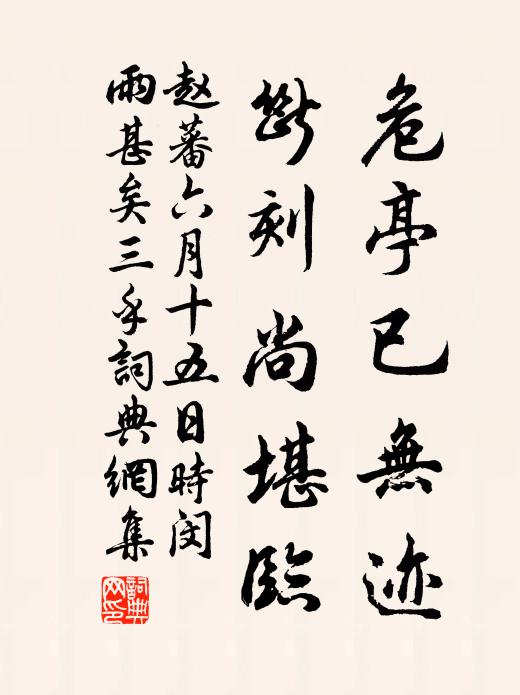 危亭已無迹
斷刻尚堪臨
赵蕃六月十五日時闵
雨甚矣三手詞典網集
詞典
网印